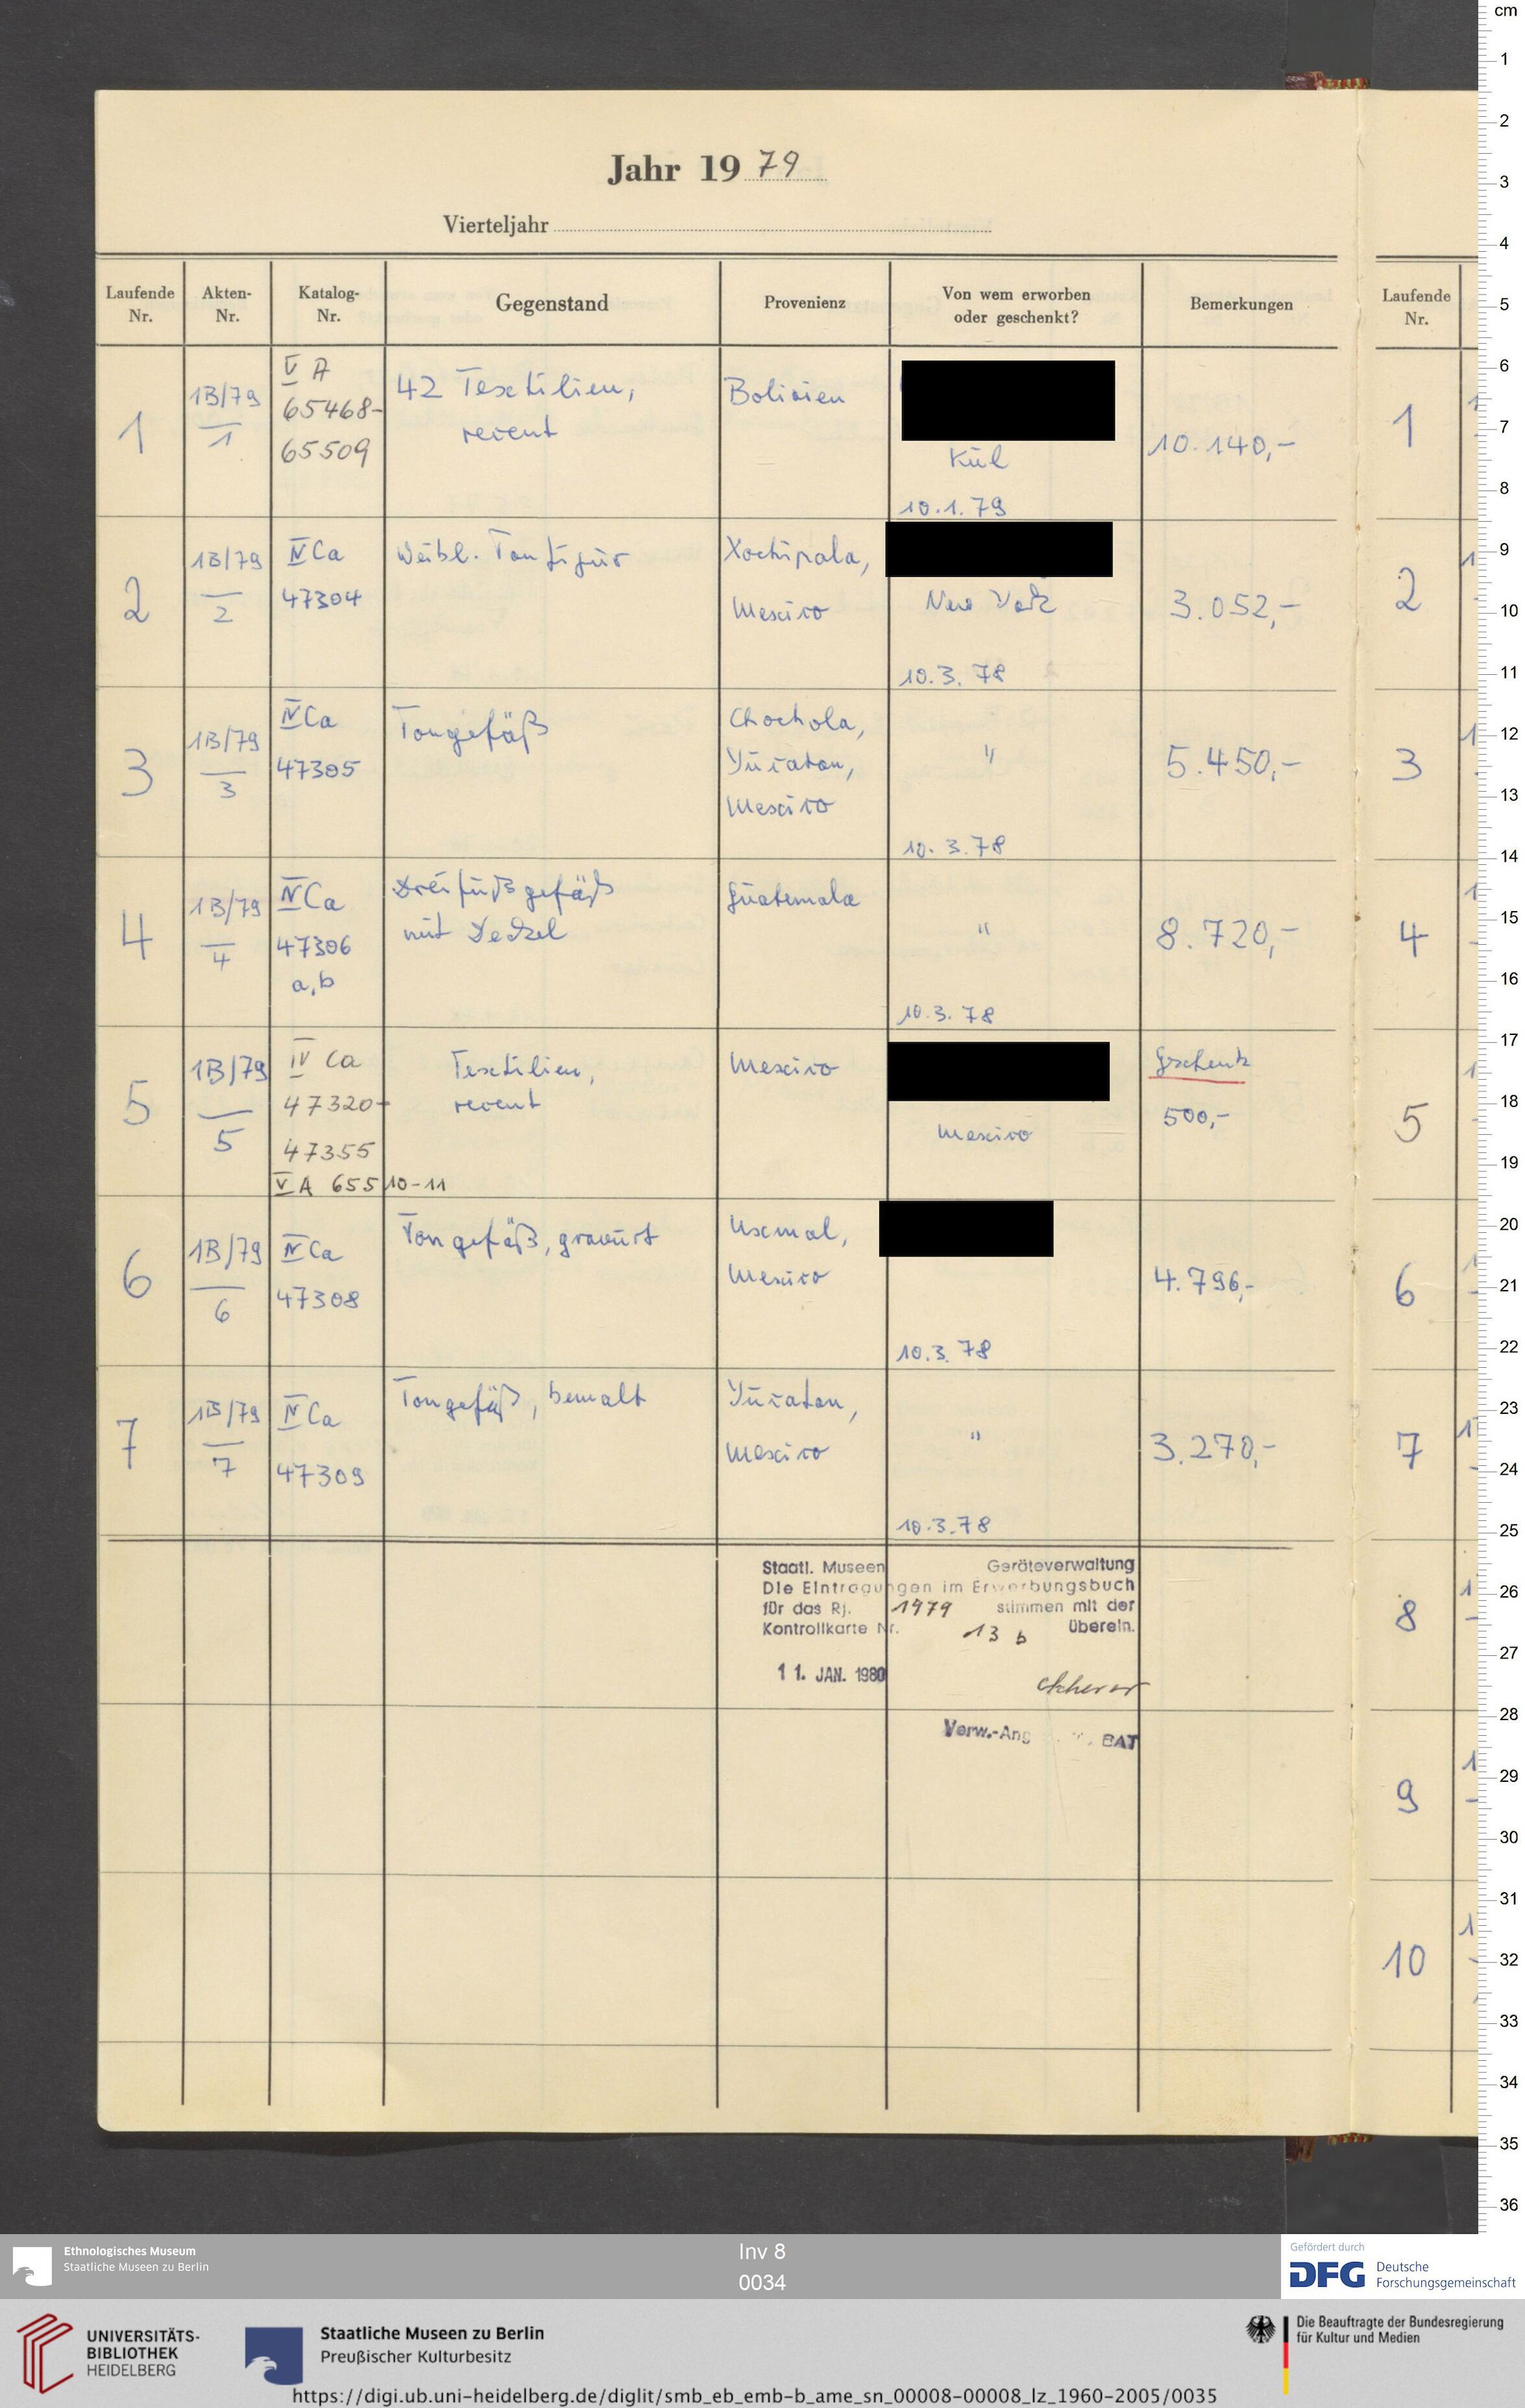 Jahr 1979
Vierteljahr
Laufende Nr.
Akten-Nr.
Katalog-Nr.
Gegenstand
Provenienz
Von wem erworben oder geschenkt?
Bemerkungen
Laufende Nr.
1
1B/79
1
V A
65468-
65509
42 Textilien,
recent
Bolivien
10.1.79
10.140,-
1
2
1B/79
2
IV Ca
47304
Weibl. Tonfigur
Xochipala,
Mexico
New York
10.3.78
3.052,-
2
3
1B/79
3
IV Ca
47305
Tongefäß
Chochola,
Yucatan,
Mexico
"
10.3.78
5.450,-
3
4
1B/79
4
IV Ca
47306
a,b
Dreifußgefäß
mit Deckel
Guatemala
"
10.3.78
8.720,-
4
5
1B/79
5
IV Ca
47320-
47355
V A 65510-11
Textilien,
recent
Mexico
Mexico
Geschenk
500,-
5
6
1B/79
6
IV Ca
47308
Tongefäß, graviert
Uxmal,
Mexico
10.3.78
4.796,-
6
7
1B/79
7
IV Ca
47309
Tongefäß, bemalt
Yucatan,
Mexico
"
10.3.78
3.270,-
7
Staatl. Museen Geräteverwaltung
Die Eintragungen im Erwerbungsbuch
für das Rj. 1979 stimmen mit der
Kontrollkarte Nr. 13 b überein.
11. JAN. 1980
Verw.-Ang BAT
8
9
10
cm
1
2
3
4
5
6
7
8
9
10
11
12
13
14
15
16
17
18
19
20
21
22
23
24
25
26
27
28
29
30
31
32
33
34
35
36
Ethnologisches Museum
Staatliche Museen zu Berlin
Inv 8
0034
Gefördert durch
DFG Deutsche
Forschungsgemeinschaft
UNIVERSITÄTS-
BIBLIOTHEK
HEIDELBERG
Staatliche Museen zu Berlin
Preußischer Kulturbesitz
Die Beauftragte der Bundesregierung
für Kultur und Medien
https://digi.ub.uni-heidelberg.de/diglit/smb_eb_emb-b_ame_sn_00008-00008_lz_1960-2005/0035